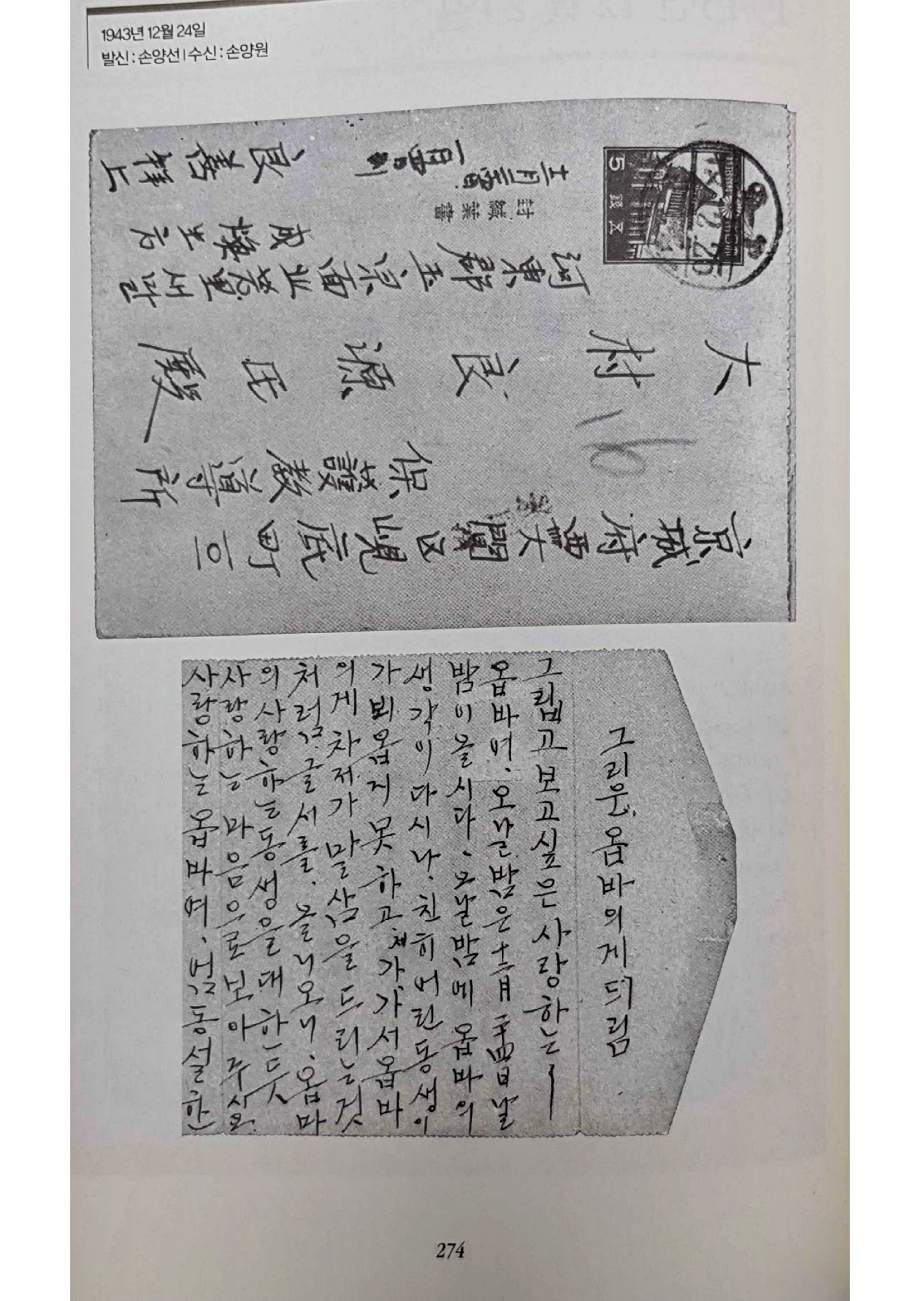 1943년 12월 24일
발신 : 손양선 | 수신 : 손양원
京城府西大門区峴底町
保護教導所
大村良源氏殿
16
河東郡玉宗面北芳里새말
封緘葉書
良善拝上
5 銭
12.26
그리운, 옵바의게 드림
그립고 보고싶은 사랑하는ㅡ
옵바여, 오날밤은 十二月二十四日날
밤이올시다. 오날밤에 옵바의
생각이 다시나, 친히 어린동생이
가 뵈옵지 못하고 제가 가서 옵바
의게 차저가 말삼을 드리는것
처럼 글서를, 올니오니, 옵바
의 사랑하는동생을 대한듯
사랑하는 마음으로 보아주실
사랑하는 옵바여, 엄동설한
274